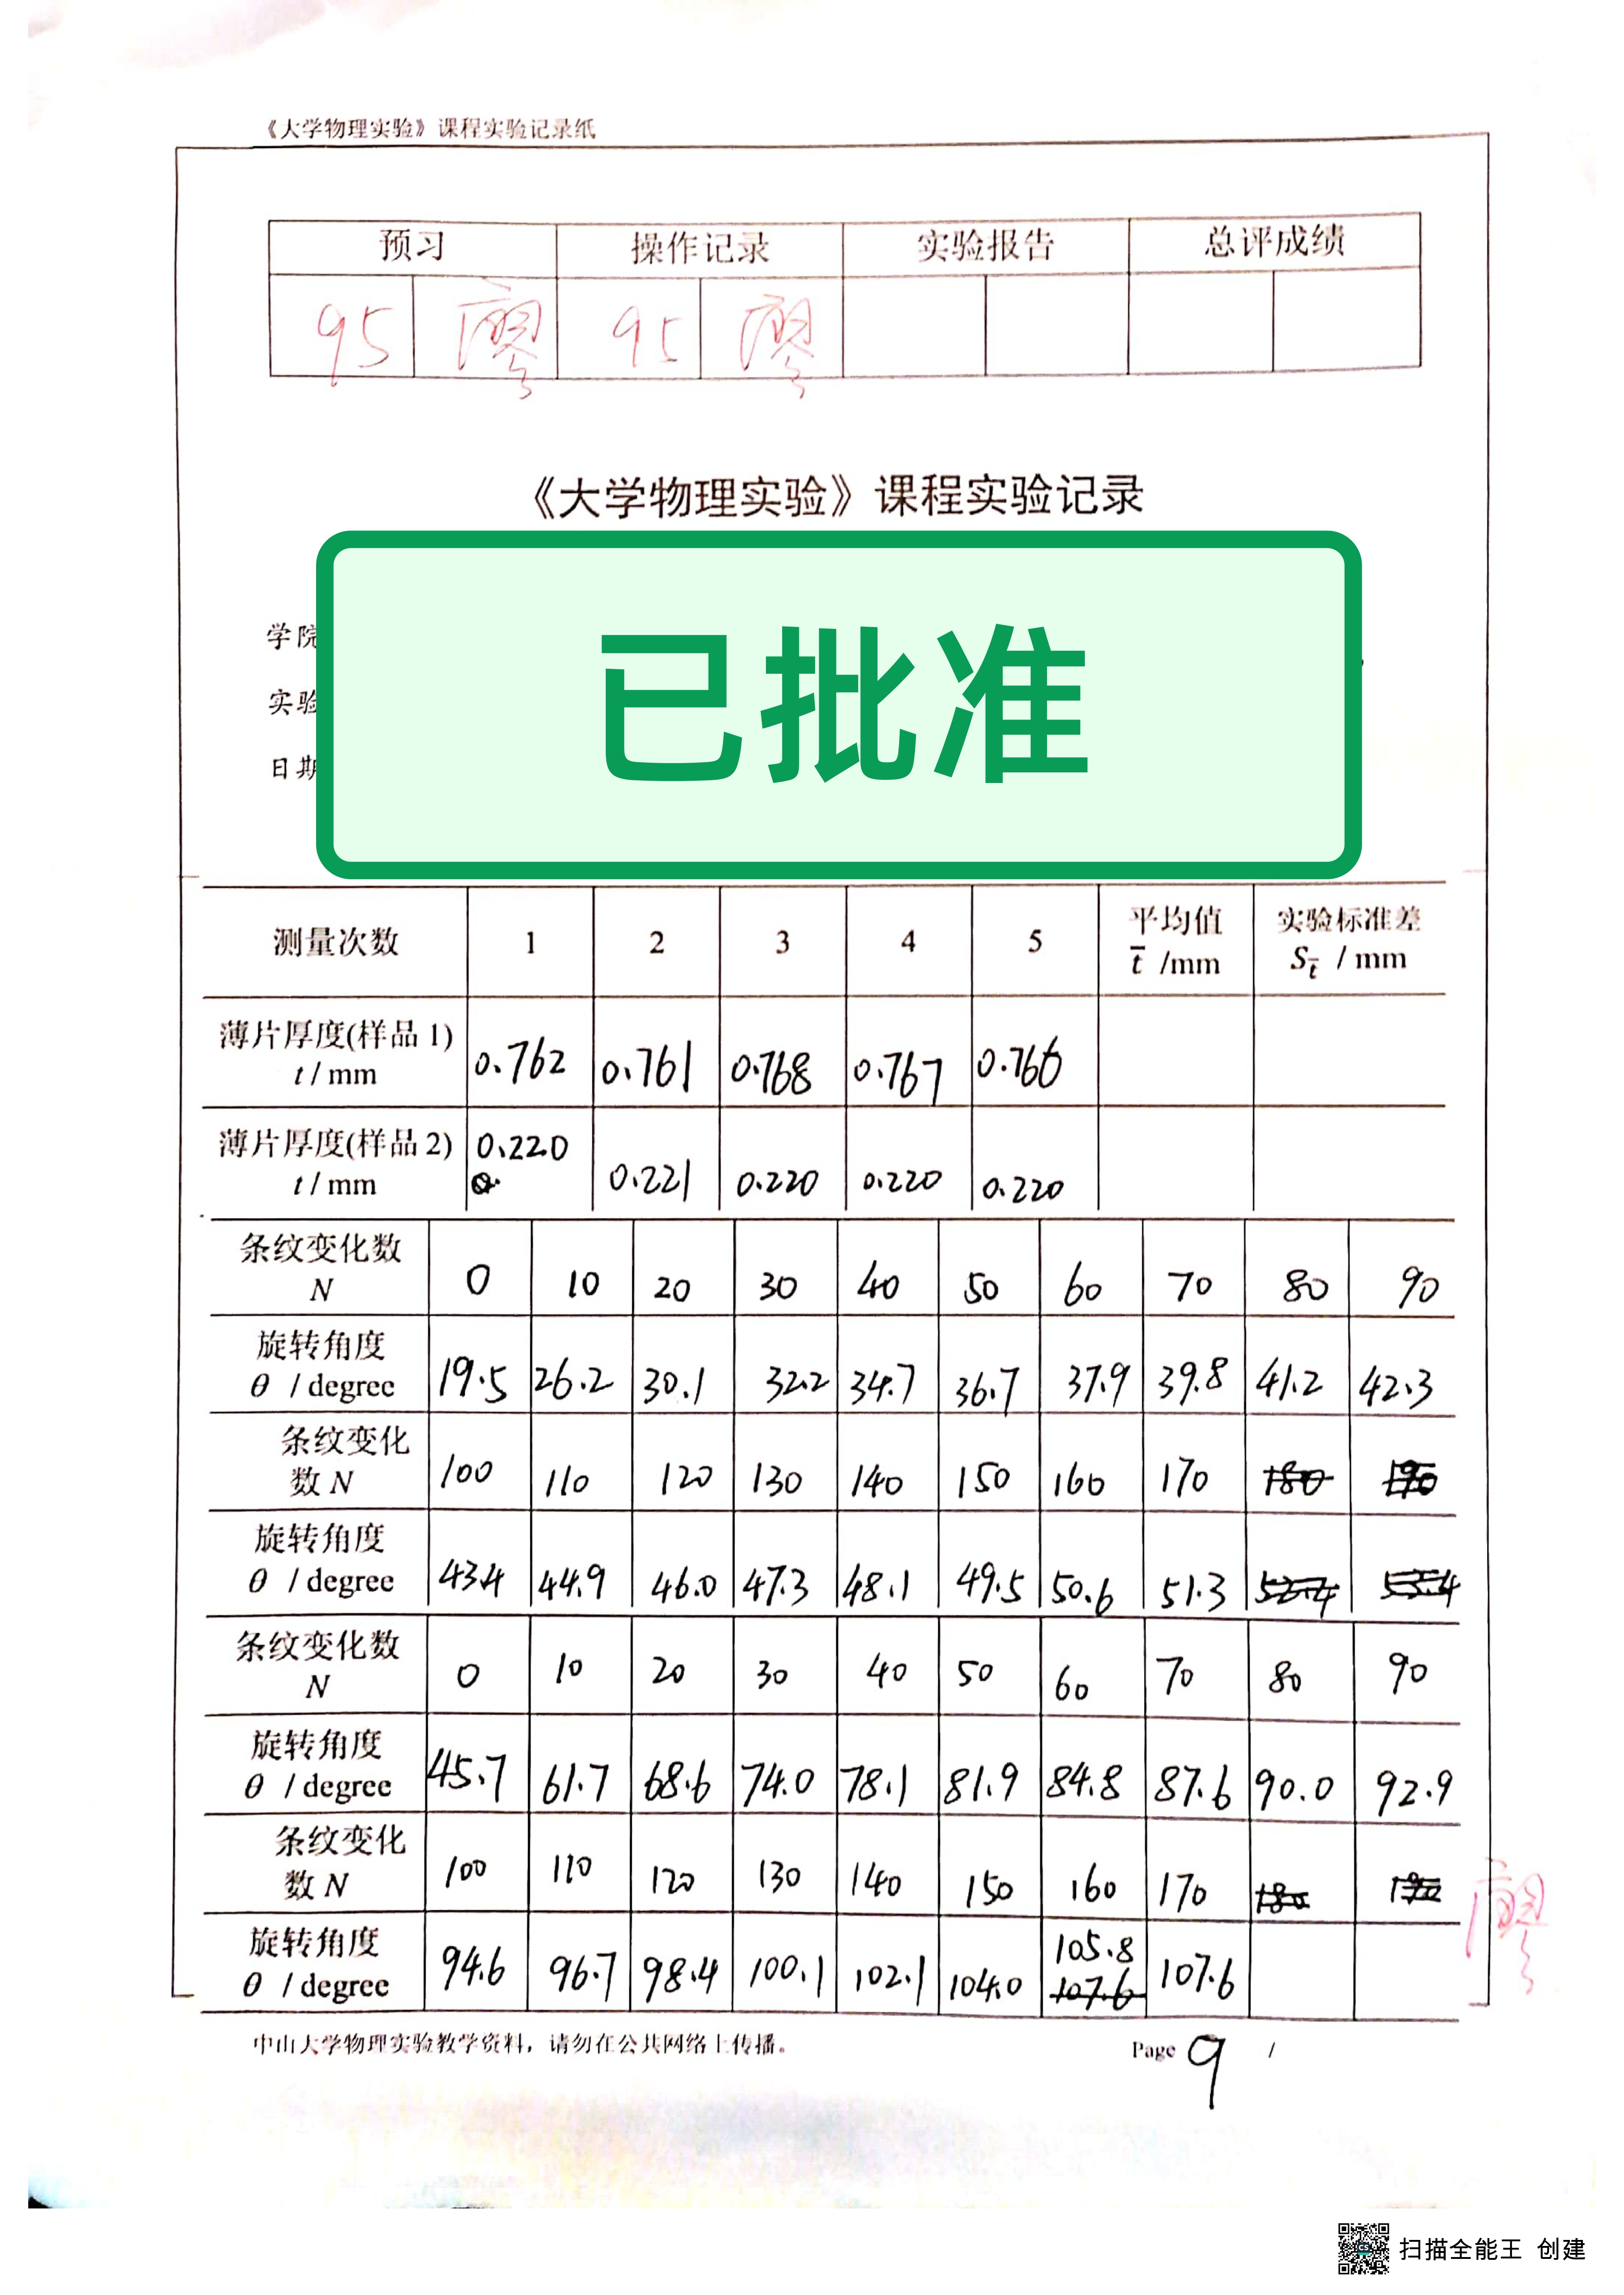 《大学物理实验》课程实验记录纸
预习 操作记录 实验报告 总评成绩
95 廖 95 廖
《大学物理实验》课程实验记录
已批准
学院
实验
日期
测量次数 1 2 3 4 5 平均值 t̄ /mm 实验标准差 S_t̄ / mm
薄片厚度(样品 1) t / mm 0.762 0.761 0.768 0.767 0.766
薄片厚度(样品 2) t / mm 0.220 0.221 0.220 0.220 0.220
条纹变化数 N 0 10 20 30 40 50 60 70 80 90
旋转角度 θ / degree 19.5 26.2 30.1 32.2 34.7 36.7 37.9 39.8 41.2 42.3
条纹变化数 N 100 110 120 130 140 150 160 170 180 190
旋转角度 θ / degree 43.4 44.9 46.0 47.3 48.1 49.5 50.6 51.3
条纹变化数 N 0 10 20 30 40 50 60 70 80 90
旋转角度 θ / degree 45.7 61.7 68.6 74.0 78.1 81.9 84.8 87.6 90.0 92.9
条纹变化数 N 100 110 120 130 140 150 160 170 180 190
旋转角度 θ / degree 94.6 96.7 98.4 100.1 102.1 104.0 105.8 107.6 107.6
廖
中山大学物理实验教学资料，请勿在公共网络上传播。 Page 9 /
扫描全能王 创建